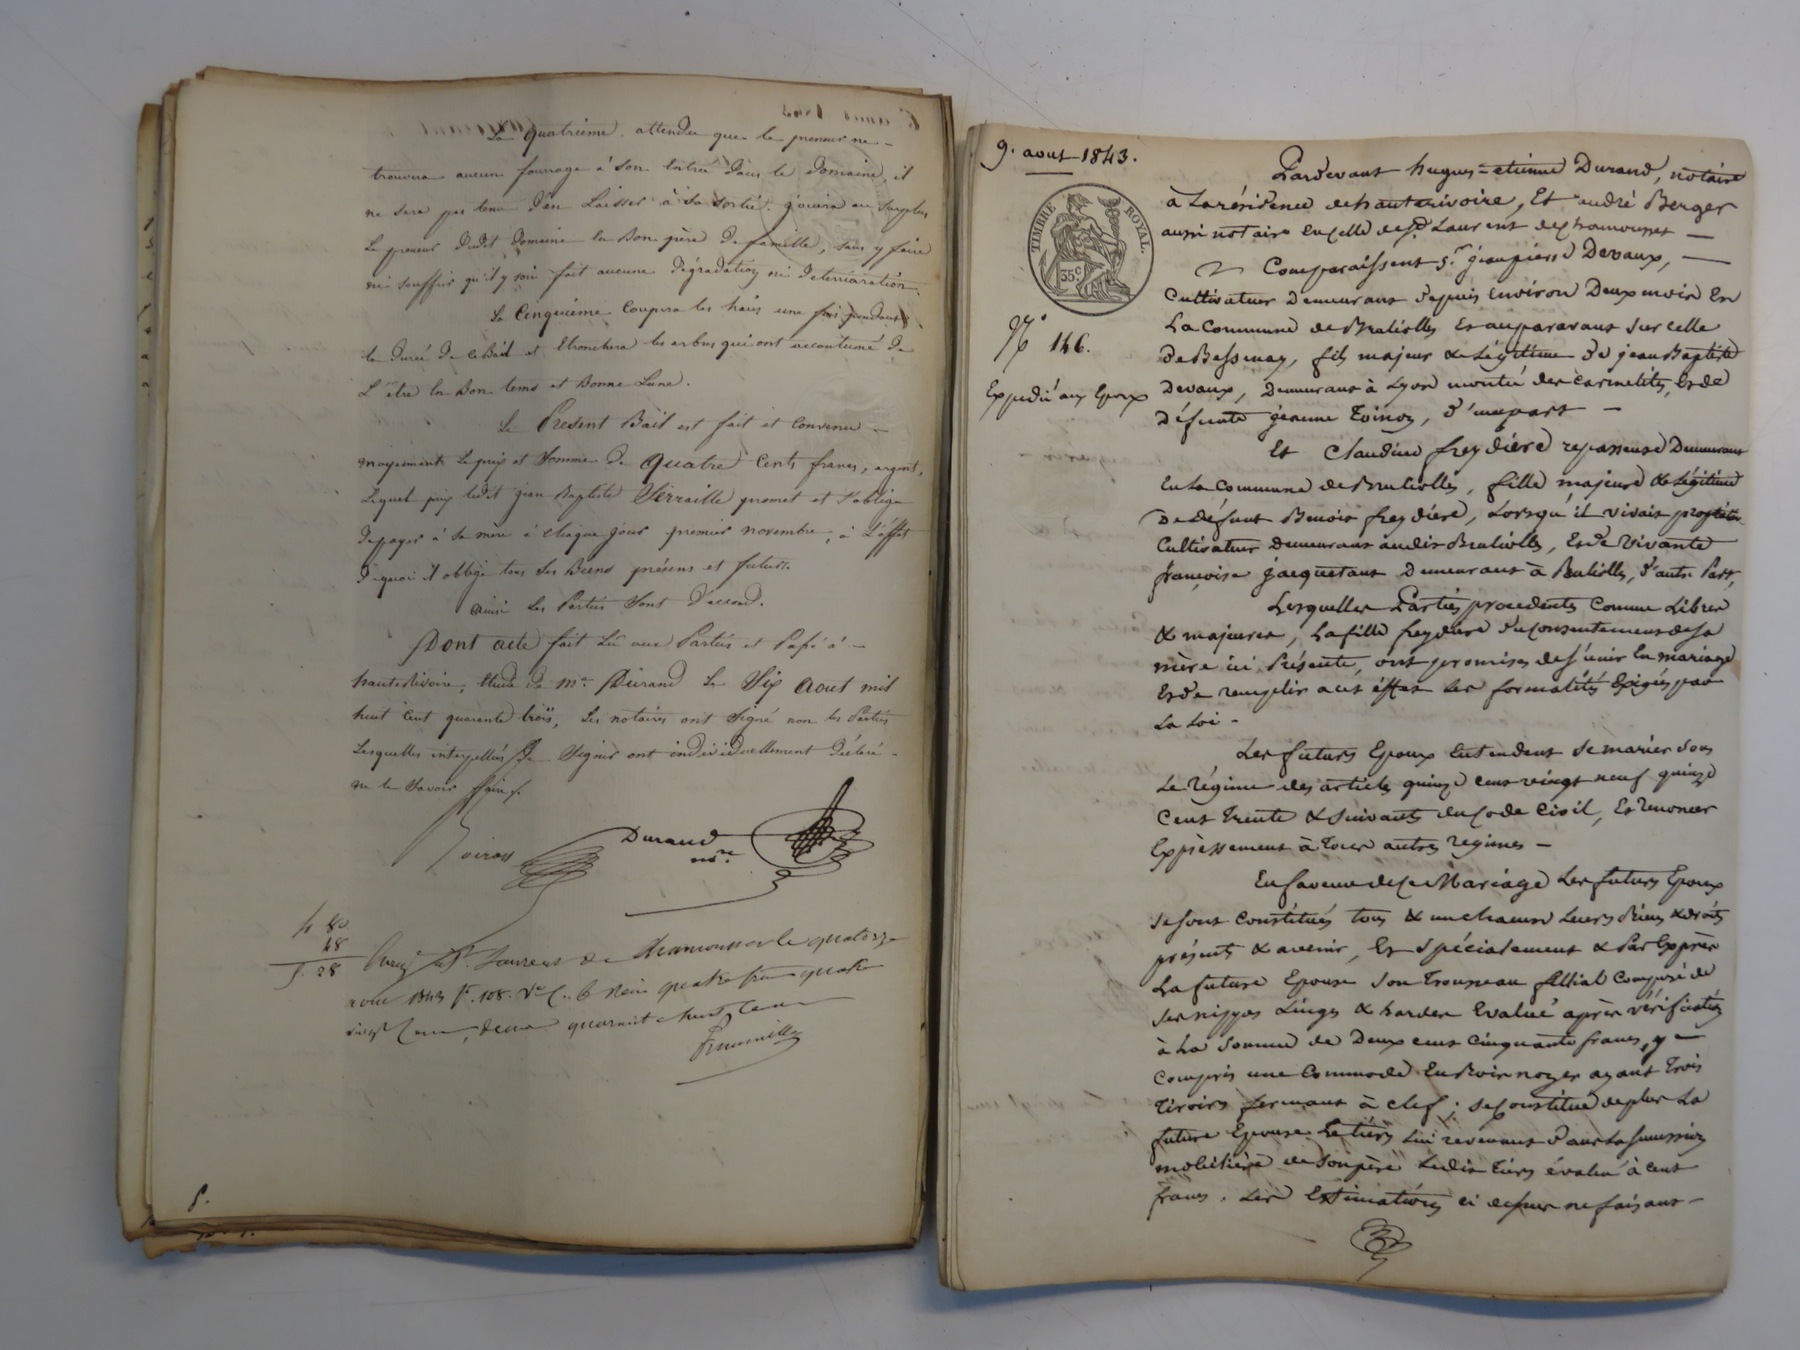 La quatrième, attendu que le preneur ne
trouvera aucun fourrage à son Entrée dans le domaine, il
ne sera pas tenu d'en Laisser à sa sortie. jouira au surplus
Le preneur dudit domaine en Bon père de famille, sans y faire
ni souffrir qu'il y soit fait aucune dégradation ni deterioration.
La Cinquieme Coupera les haies une fois pendant
la durée de ce Bail et Etronchera les arbres qui ont accoutumé de
L'être en Bon tems et Bonne Lune.
Le Présent Bail est fait et Convenu
moyennant Le prix et Somme de quatre Cents francs, argent,
Lequel prix ledit jean Baptiste promet et s'oblige
de payer à sa mère à chaque jour premier novembre, à L'éffet
de quoi il oblige tous ses Biens présens et futurs.
ainsi Les Parties sont d'accord.
Dont acte fait Lû aux Parties et Passé à
hauterivoire, Etude de Me. Durand Le Six aout mil
huit Cent quarante trois, Les notaires ont signé non les Parties
Lesquelles interpellées de Signer ont individuellement déclaré
ne le savoir faire.
Durand
nore.
4 80
48
5. 28
St. Laurent de Chamousset le quatorze
aout 1843 fo. 108. Vo C. 6 Reçu quatre fr quatre
vingt cent, decime quarante huit cent
5.
9. aout 1843.
TIMBRE ROYAL.
35c
No 146.
Expedié aux Epoux
Pardevant hugues=etienne Durand, notaire
à La résidence de hauterivoire, Et andré Berger
aussi notaire en celle de St. Laurent de chamousset
Comparaissent Sr. jean pierre Devaux,
Cultivateur Demeurant depuis environ Deux mois En
La Commune de Brullioles Et auparavant sur celle
de Bessenay, fils majeur & Légitime de jean Baptiste
Devaux, Demeurant à Lyon montée des carmelites, Et de
Défunte jeanne Toinon, d'une part
Et Claudine freydiere repasseuse Demeurant
En la Commune de Brullioles, fille majeure & Légitime
De Défunt Benoit freydiere, Lorsqu'il vivait propriétaire
Cultivateur Demeurant audit Brullioles, Et de Vivante
françoise jacquetant Demeurant à Brullioles, d'autre Part,
Lesquelles Parties procedentes Comme Libres
& majeures, La fille freydiere du consentement de sa
mère ici Présente, ont promises de s'unir En mariage
Et de remplir a cet éffet les formalités Exigées par
La Loi
Les futurs Epoux Entendent se marier sous
Le régime des articles quinze cent vingt neuf quinze
Cent Trente & suivants du Code Civil, Et renoncer
Expressement à Tous autres régimes
En faveur de ce Mariage Les futurs Epoux
se sont Constitués tous & un chacun Leurs Biens & droits
présents & avenir, Et spécialement & Par Exprès
La future Epouse son Trousseau fillial Composé de
ses nippes Linges & hardes Evalué après vérification
à La Somme de Deux cent cinquante francs, y
compris une Commode En Bois noyer ayant Trois
Tiroirs fermant à clef; se Constitue de plus La
future Epouse Le tiers Lui revenant dans La succession
mobilière de son père Ledit tiers évalué à cent
francs. Les Estimations ci dessus ne faisant